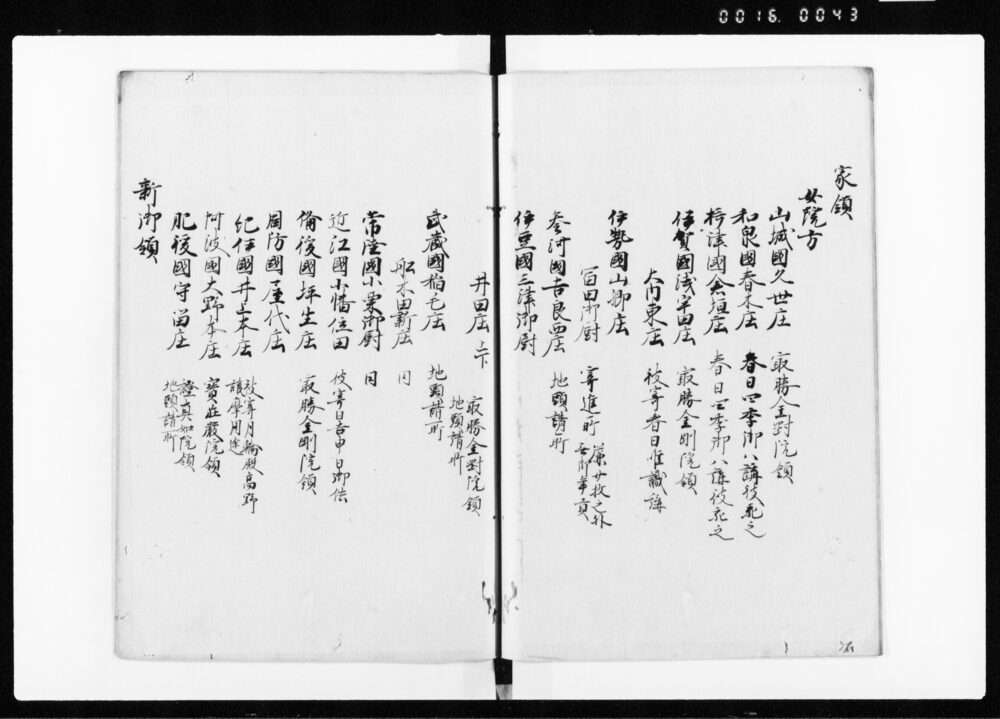 0016 0043
家領
女院方
山城國久世庄 最勝金剛院領
和泉國春木庄 春日四季御八講彼充之
摂津國倉垣庄 春日四季御八講彼充之
伊賀國浅宇田庄 最勝金剛院領
大内東庄 被寄春日唯識講
伊勢國山御庄
冨田御厨 寄進所 簾廿枚之外無所年貢
参河國吉良西庄 地頭請所
伊豆國三津御厨
井田庄 上下 最勝金剛院領
地頭請所
武蔵國稲毛庄 地頭請所
船木田新庄 同
常陸國小栗御厨 同
近江國小幡位田 被寄日吉申日御供
備後國坪生庄 最勝金剛院領
周防國屋代庄
紀伊國井上本庄 被寄月輪殿高野
護摩用途
阿波國大野本庄 寶荘嚴院領
肥後國守富庄 證真如院領
地頭請所
新御領